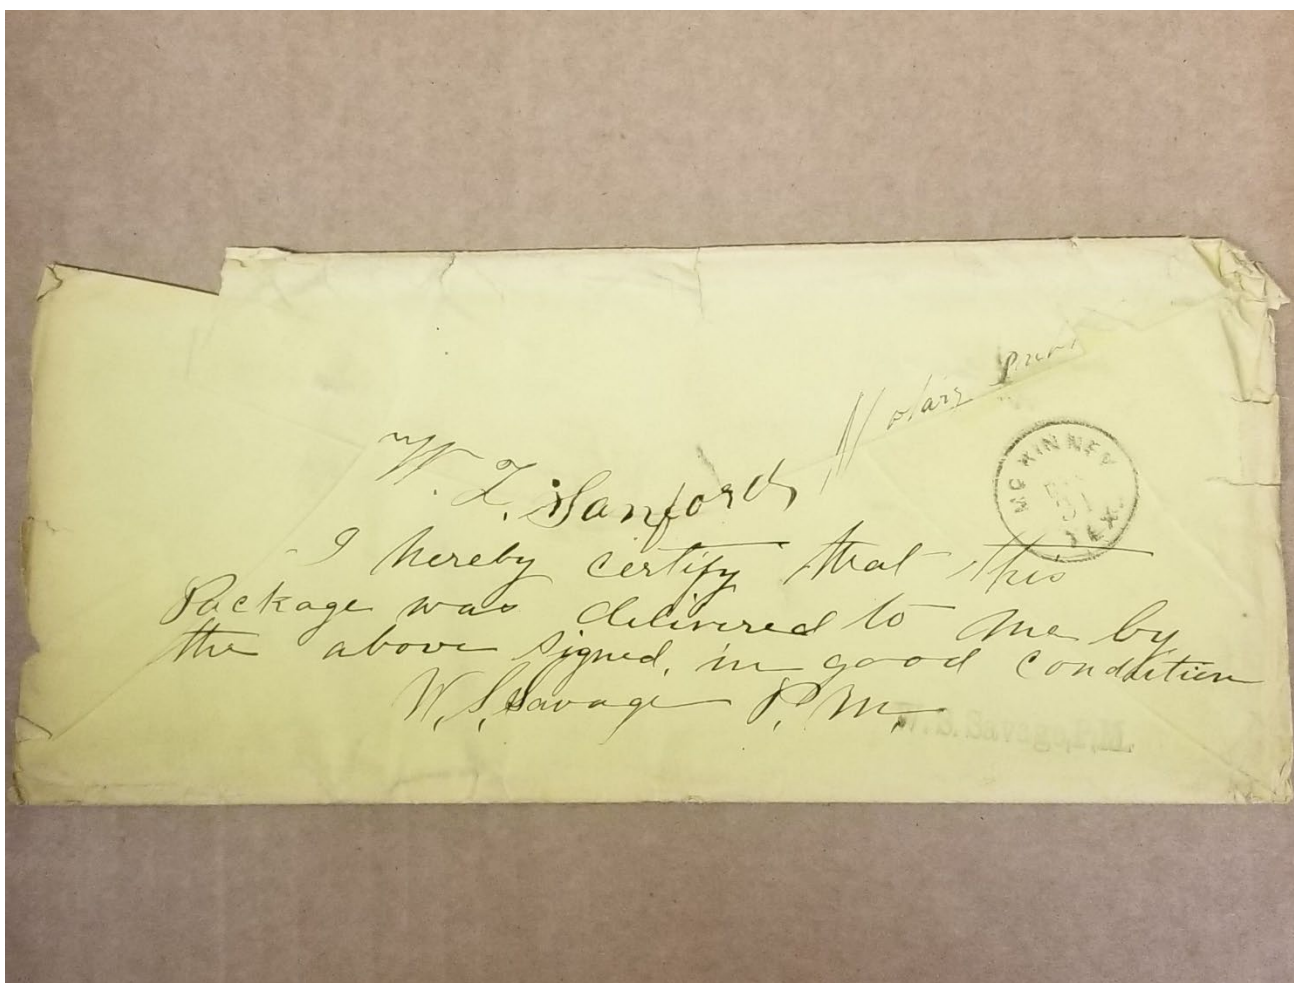 Notary
W. Z. Sanford
MCKINNEY
TEX.
I hereby certify that this
Package was delivered to me by
the above signed, in good condition
W. S. Savage P.M.
W. S. Savage, P.M.